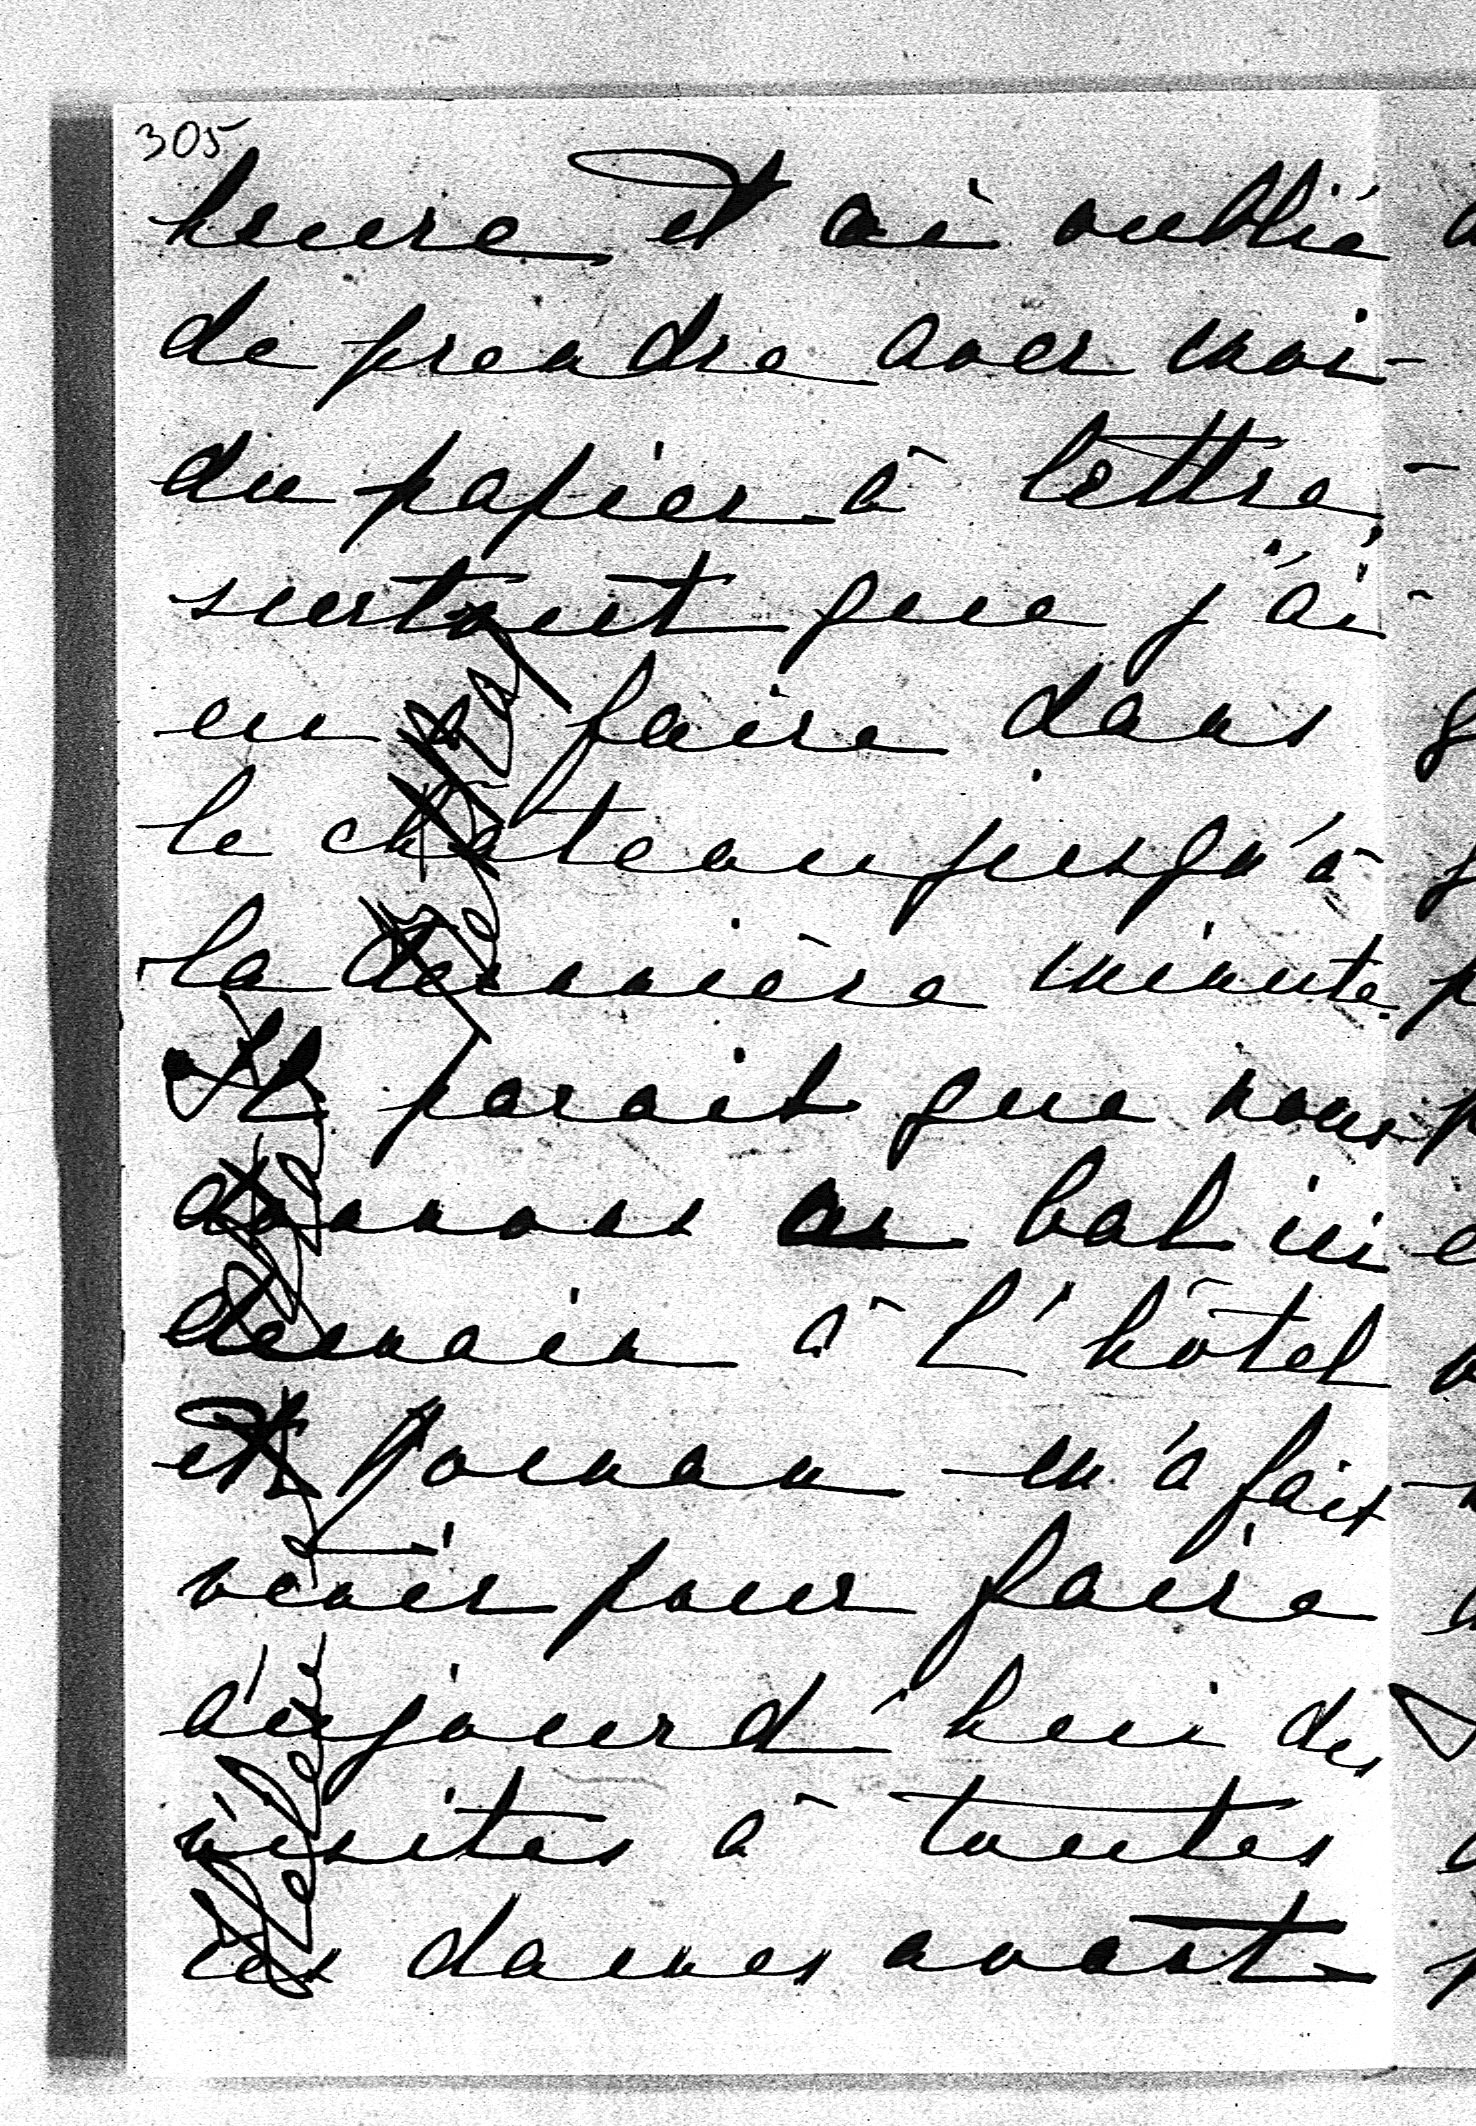 305
heure et ai oublié
de prendre avec moi
du papier à lettre
surtout que j'ai
eu faire dans
le château jusqu'à
la dernière minute
Il parait que nous
donnons un bal ici
demain à l'hôtel
et m'a fait
venir pour faire
aujourd'hui des
visites à toutes
ces dames avant